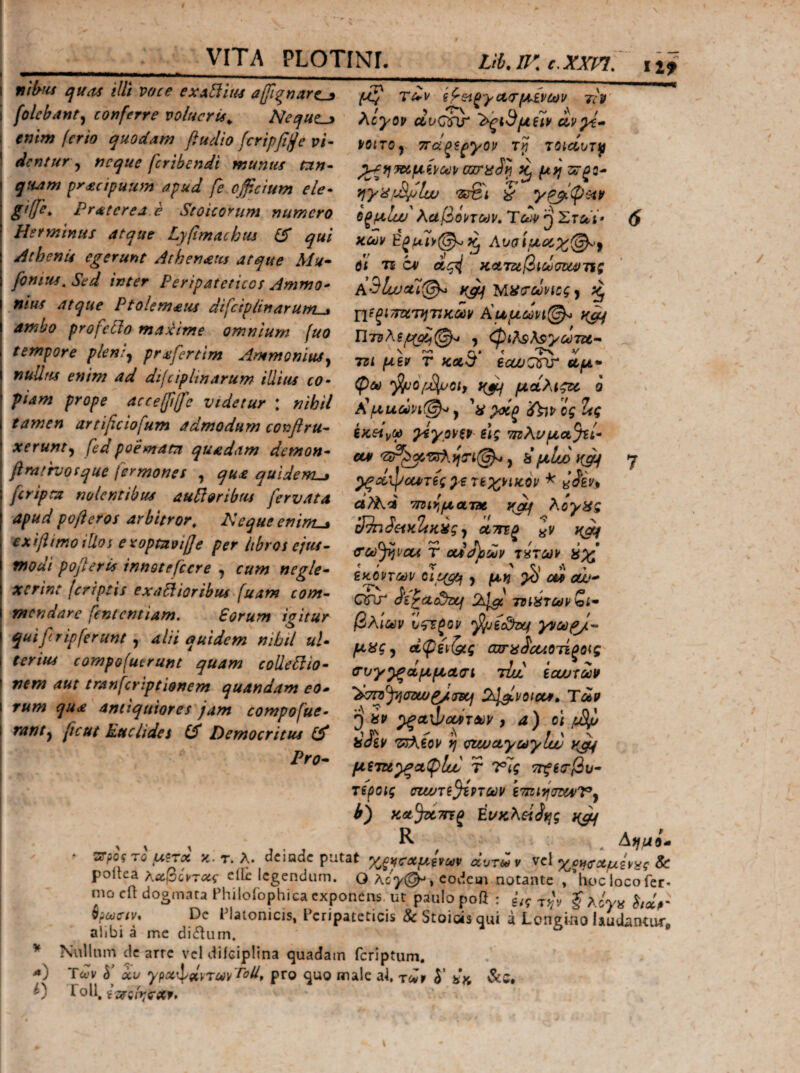 VITA PLOTINI. Lib. IV. c. XXVI. 129
nibus quas illi voce exactius assignare
solebant, conferre volueris. Neque
enim serio quodam studio scripsisse vi-
dentur, neque scribendi munus tan-
quam præcipuum apud se officium ele-
gisse. Præterea è Stoicorum numero
Herminus atque Lysimachus & qui
Athenis egerunt Athenæus atque Mu-
sonius. Sed inter Peripateticos Ammo-
nius atque Ptolemæus disciplinarum
ambo professo maxime omnium suo
tempore pleni, præsertim Ammonius,
nullus enim ad disciplinarum illius co-
piam prope accessisse videtur ; nihil
tamen artificiosum admodum constru-
xerunt, sed poëmata quædam demon-
strativosque sermones , quæ quidem
scripta nolentibus auctoribus servata
apud posteros arbitror. Neque enim
existimo illos exoptavisse per libros ejus-
modi posteris innotescere , cum negle-
xerint scriptis exactioribus suam com-
mendare sententiam. Eorum igitur
qui scripserunt , alii quidem nihil ul-
terius composuerunt quam collectio-
nem aut transcriptionem quandam eo-
rum quæ antiquiores jam composue-
rant, sicut Euclides & Democritus &
Pro-
μζ τῶν ἐξειργασμένων τὸν
λόγον αὐτοῦ ἀριθμεῖν ἂν γέ-
νοιτο, πάρεργον τῇ τοιαύτῃ
χρησαμένων σπουδῇ καὶ μὴ προ-
ηγουμένην περὶ τοῦ γράφειν
ὁρμὴν λαβόντων. Τῶν δὲ Στωϊ- 6
κῶν Ἑρμῖνος καὶ Λυσίμαχος,
οἵ τε ἐν ἄστει καταβιώσαντες
Ἀθήναιος καὶ Μουσώνιος, καὶ
Περιπατητικῶν Ἀμμώνιος καὶ
Πτολεμαῖος , φιλολογώτα-
τοι μὲν τῶν καθ' ἑαυτοὺς ἄμ-
φω γενόμενοι, καὶ μάλιστα ὁ
Ἀμμώνιος, οὐ γάρ ἐστιν ὅς τις
ἐκείνῳ γέγονεν εἰς πολυμαθεί-
αν παραπλήσιος, οὐ μὴν καὶ 7
γράψαντές γε τεχνικὸν * οὐδὲν,
ἀλλὰ ποιήματα καὶ λόγους
ἐπιδεικτικοὺς, ἅπερ οὖν καὶ
σωθῆναι τῶν ἀνδρῶν τούτων οὐχ
ἑκόντων οἶμαι , μὴ γὰρ ἂν αὐ-
τοὺς δέξασθαι διὰ τοιούτων βι-
βλίων ὕστερον γενέσθαι γνωρί-
μους, ἀφέντας σπουδαιοτέροις
συγγράμμασι τὴν ἑαυτῶν
ἀποθησαυρίσαι διάνοιαν. Τῶν
δὲ οὖν γραψάντων , a) οἱ μὲν
οὐδὲν πλέον ἢ συναγωγὴν καὶ
μεταγραφὴν τῶν τοῖς πρεσβυ-
τέροις συντεθέντων ἐποιήσαντο,
b) καθάπερ Εὐκλείδης καὶ
R Δημό-
* πρὸς τὸ μετὰ κ. τ. λ. deinde putat χρησαμένων αὐτῶν vel χρησαμένους &
postea λαβόντας esse legendum. Ὁ λόγος, eodem notante , hoc loco ser-
mo est dogmata Philosophica exponens. ut paulo post : εἰς τὴν τοῦ λόγου διάρ-
θρωσιν. De Platonicis, Peripateticis & Stoicis qui à Longino laudantur,
alibi à me dictum.
* Nullum de arte vel disciplina quadam scriptum.
a) Τῶν δ' ἂν γραψάντων Toll, pro quo male al. τῶν δ' οὐκ &c.
b) Toll. ἐποίησαν.